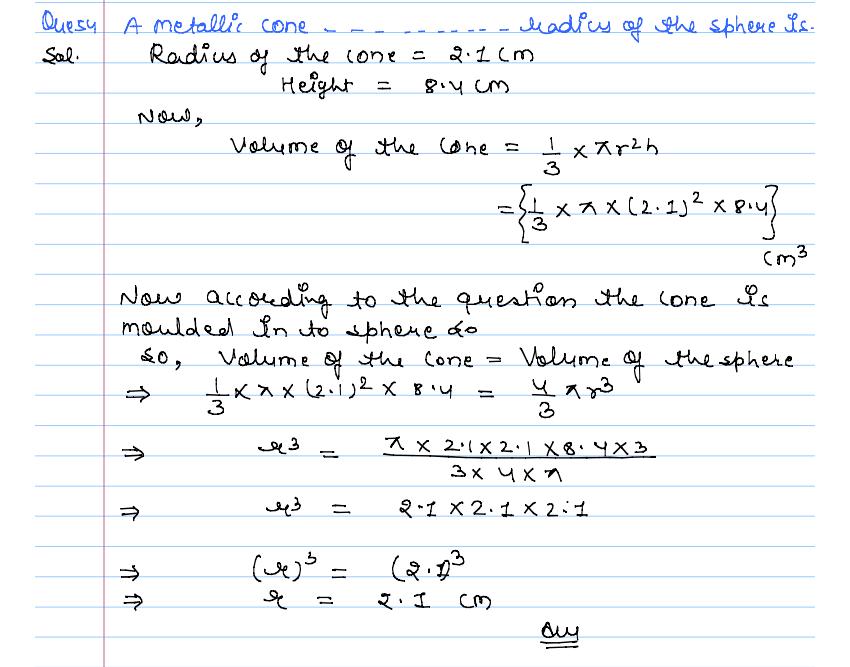 Ques4 A metallic cone - - - - - - - - - - radius of the sphere is.
Sol. Radius of the cone = 2.1 cm
Height = 8.4 cm
Now,
Volume of the cone = 1/3 × πr²h
= {1/3 × π × (2.1)² × 8.4}
cm³
Now according to the question the cone is
moulded in to sphere so
so, Volume of the cone = Volume of the sphere
⇒ 1/3 × π × (2.1)² × 8.4 = 4/3 πr³
⇒ r³ = π × 2.1 × 2.1 × 8.4 × 3 / 3 × 4 × π
⇒ r³ = 2.1 × 2.1 × 2.1
⇒ (r)³ = (2.1)³
⇒ r = 2.1 cm
Ans